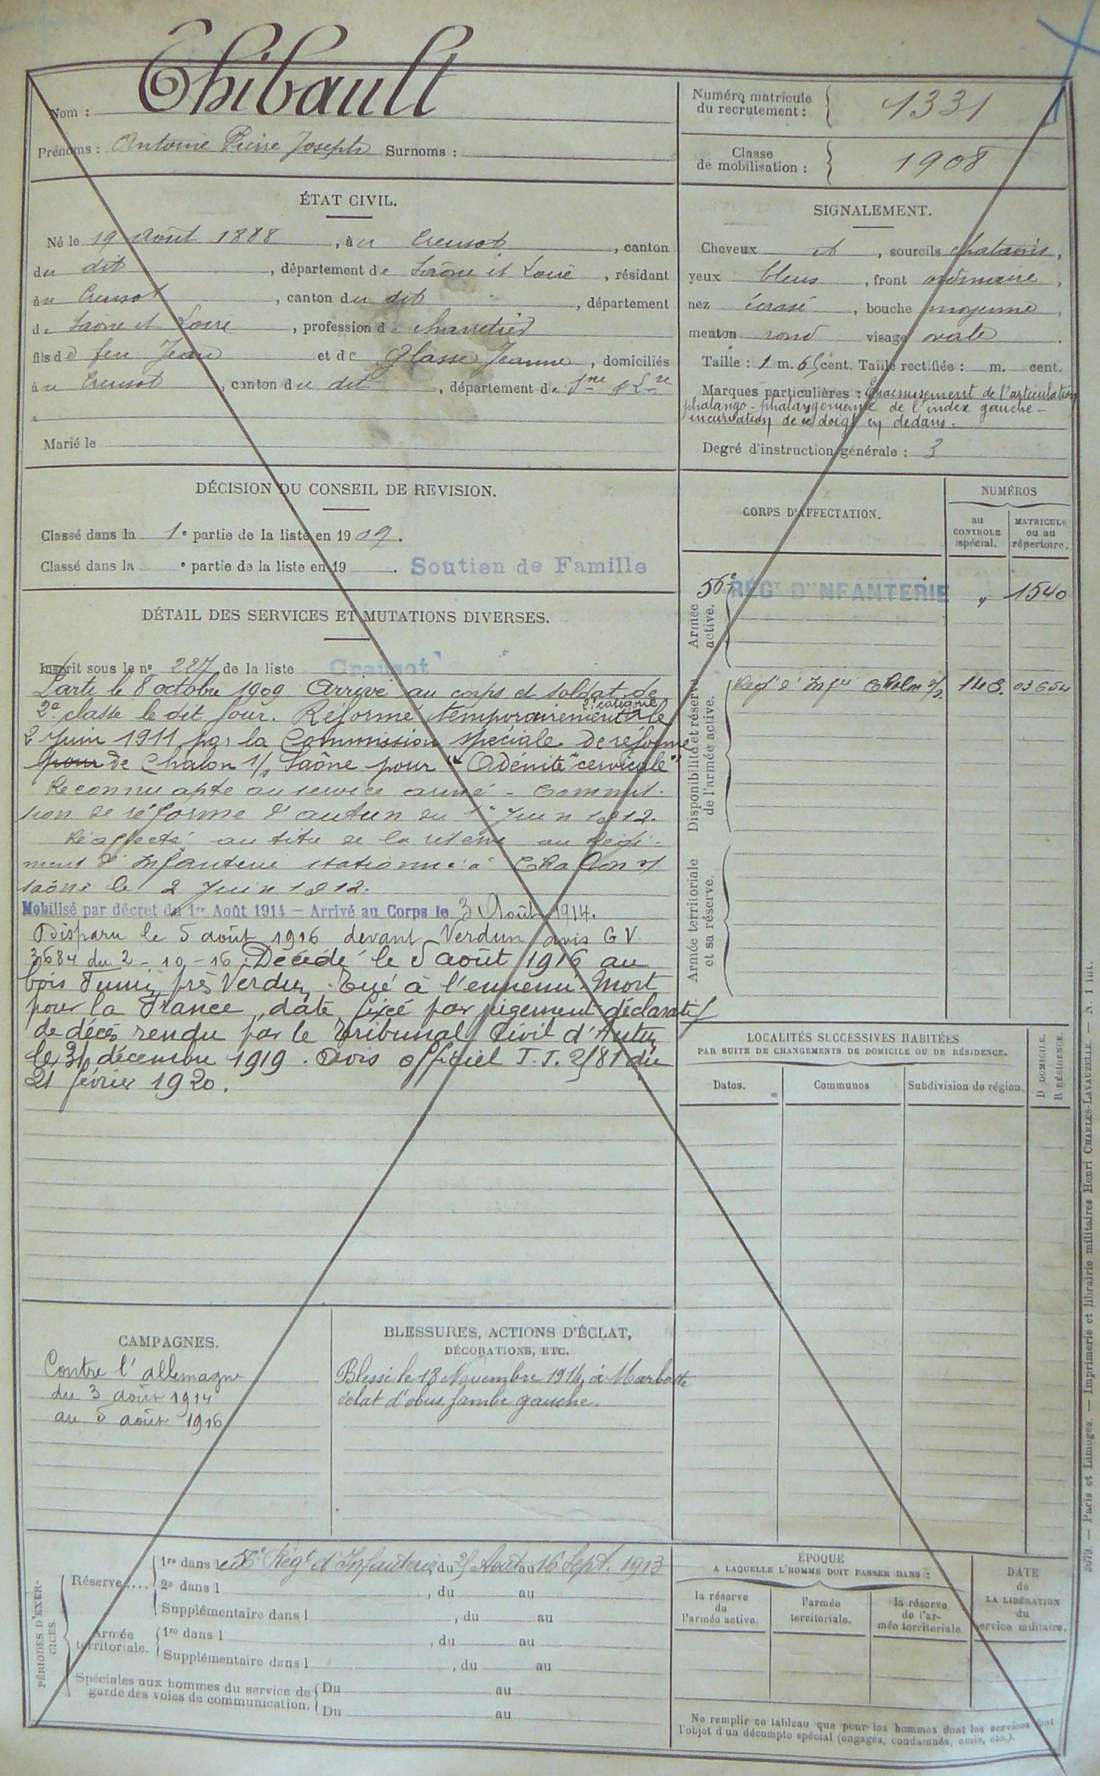 Nom : Thibault
Prénoms : Antoine Pierre Joseph Surnoms :
Numéro matricule du recrutement : 1331
Classe de mobilisation : 1908
ÉTAT CIVIL.
Né le 19 Août 1888, à u Creusot, canton
du dit, département de Saône et Loire, résidant
à u Creusot, canton du dit, département
de Saône et Loire, profession de charretier
fils de feu Jean et de Glasse Jeanne, domiciliés
à u Creusot, canton du dit, département de Sne & Lre
Marié le
SIGNALEMENT.
Cheveux et, sourcils chatains,
yeux bleus, front ordinaire,
nez écrasé, bouche moyenne,
menton rond visage ovale.
Taille : 1 m. 65 cent. Taille rectifiée : m. cent.
Marques particulières : Épaississement de l'articulation
phalango-phalangienne de l'index gauche -
incurvation de ce doigt en dedans.
Degré d'instruction générale : 3
DÉCISION DU CONSEIL DE REVISION.
Classé dans la 1e partie de la liste en 1909.
Classé dans la e partie de la liste en 19 . Soutien de Famille
CORPS D'AFFECTATION.
NUMÉROS
au CONTROLE spécial.
MATRICULE ou au répertoire.
Armée active.
56e RÉGt D'INFANTERIE " 1540
Disponibilité et réserve de l'armée active.
Regt d'Infie Chalon s/s. 148. 03654
Armée territoriale et sa réserve.
DÉTAIL DES SERVICES ET MUTATIONS DIVERSES.
Inscrit sous le no 227 de la liste Creusot
Parti le 8 octobre 1909 Arrivé au corps et soldat de
2e classe le dit jour. Réformé temporairement 2e catégorie le
2 Juin 1911 par la Commission spéciale de réforme
pour de Chalon s/ Saône pour "Adénite cervicale"
Reconnu apte au service armé - Commis-
sion de réforme d'autun du 1er Juin 1912.
Réaffecté au titre de la réserve au Régi-
ment d'Infanterie stationné à Chalon s/
Saône le 2 Juin 1912.
Mobilisé par décret du 1er Août 1914 – Arrivé au Corps le 3 Août 1914.
Disparu le 5 août 1916 devant Verdun avis G V
3684 du 2-10-16. Décédé le 5 août 1916 au
bois Fumin près Verdun. Tué à l'ennemi. Mort
pour la France, date fixée par jugement déclaratif
de décès rendu par le Tribunal Civil d'Autun
le 31 décembre 1919. Avis officiel I.T. 2/81 du
21 février 1920.
LOCALITÉS SUCCESSIVES HABITÉES
PAR SUITE DE CHANGEMENTS DE DOMICILE OU DE RÉSIDENCE.
Dates.
Communes
Subdivision de région.
D DOMICILE.
R RÉSIDENCE.
CAMPAGNES.
Contre l'allemagne
du 3 août 1914
au 5 août 1916
BLESSURES, ACTIONS D'ÉCLAT,
DÉCORATIONS, ETC.
Blessé le 18 Novembre 1914 à Marbotte
éclat d'obus jambe gauche.
PÉRIODES D'EXERCICES.
Réserve....
1re dans le 56e Régt d'Infanterie, du 31 Août au 16 Sept. 1913
2e dans l , du au
Supplémentaire dans l , du au
Armée territoriale.
1re dans l , du au
Supplémentaire dans l , du au
Spéciales aux hommes du service de garde des voies de communication.
Du au
Du au
ÉPOQUE
A LAQUELLE L'HOMME DOIT PASSER DANS :
la réserve de l'armée active.
l'armée territoriale.
la réserve de l'armée territoriale
DATE de LA LIBÉRATION du service militaire.
Ne remplir ce tableau que pour les hommes dont les services font
l'objet d'un décompte spécial (engagés, condamnés, omis, etc.).
Paris et Limoges. — Imprimerie et librairie militaires Henri CHARLES-LAVAUZELLE. — N. 1 int.